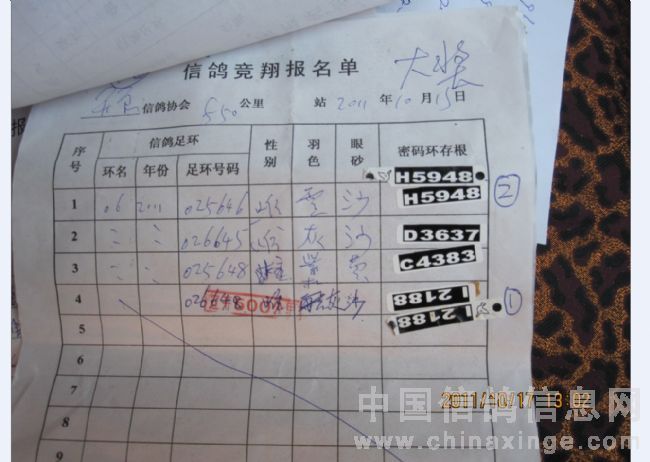 信鸽竞翔报名单 大奖
信鸽协会 550 公里 站 2011 年 10 月 15 日
序号 信鸽足环 性别 羽色 眼砂 密码环存根
环名 年份 足环号码
H5948
1 06 2011 025646 雨 沙 H5948 ②
2 〃 〃 026645 灰 沙 D3637
3 〃 〃 025648 雌 紫 黄 C4383
4 026648 沙 12188 ①
5 12188
6
7
8
9
2011/10/17 13:02
中国信鸽信息网
www.chinaxinge.com